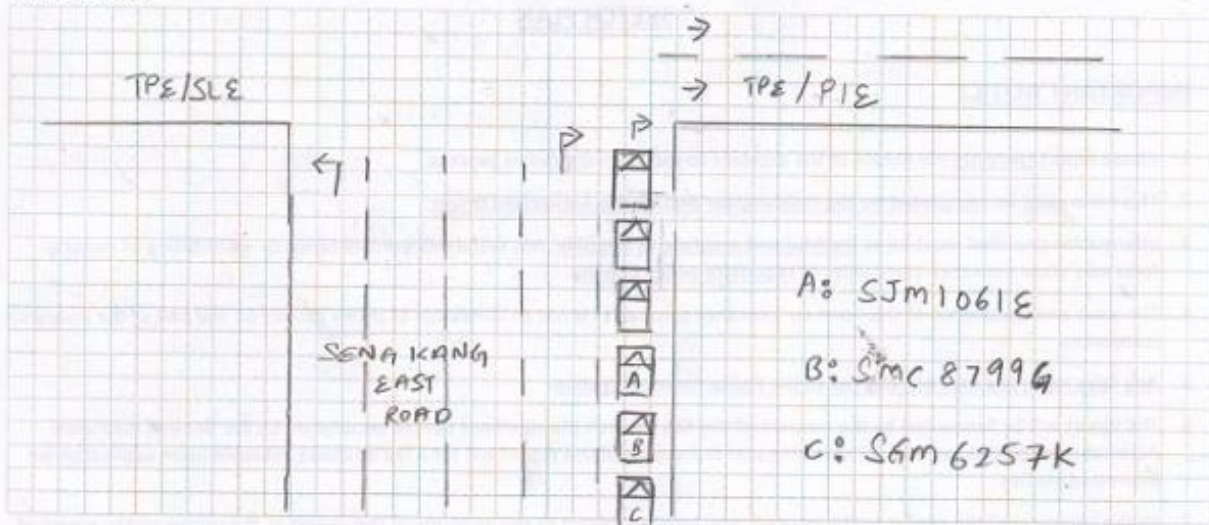 TPE/SLE
TPE/PIE
SENG KANG
EAST
ROAD
A: SJM1061E
B: SMC 8799G
C: SGM 6257K
A
B
C